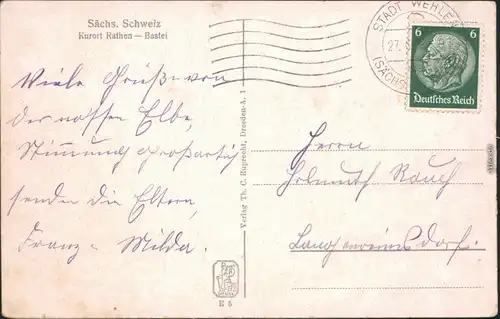 Sächs. Schweiz
Kurort Rathen — Bastei
Viele Grüße von
der nassen Elbe,
Stimmung großartig
senden die Eltern,
Franz u. Milda.
Verlag Th. C. Ruprecht, Dresden-A. 1
E 5
STADT WEHLEN
27.
(SÄCHS
6 6
Deutsches Reich
Herrn
Helmuth Rauch
Langhennersdorf.